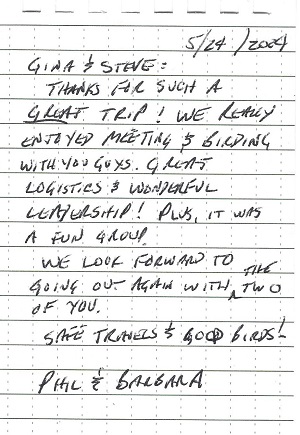 5/24/2004
GINA & STEVE:
THANKS FOR SUCH A
GREAT TRIP! WE REALLY
ENJOYED MEETING & BIRDING
WITH YOU GUYS. GREAT
LOGISTICS & WONDERFUL
LEADERSHIP! PLUS, IT WAS
A FUN GROUP.
WE LOOK FORWARD TO
GOING OUT AGAIN WITH THE TWO
OF YOU.
SAFE TRAVELS & GOOD BIRDS!
PHIL & BARBARA